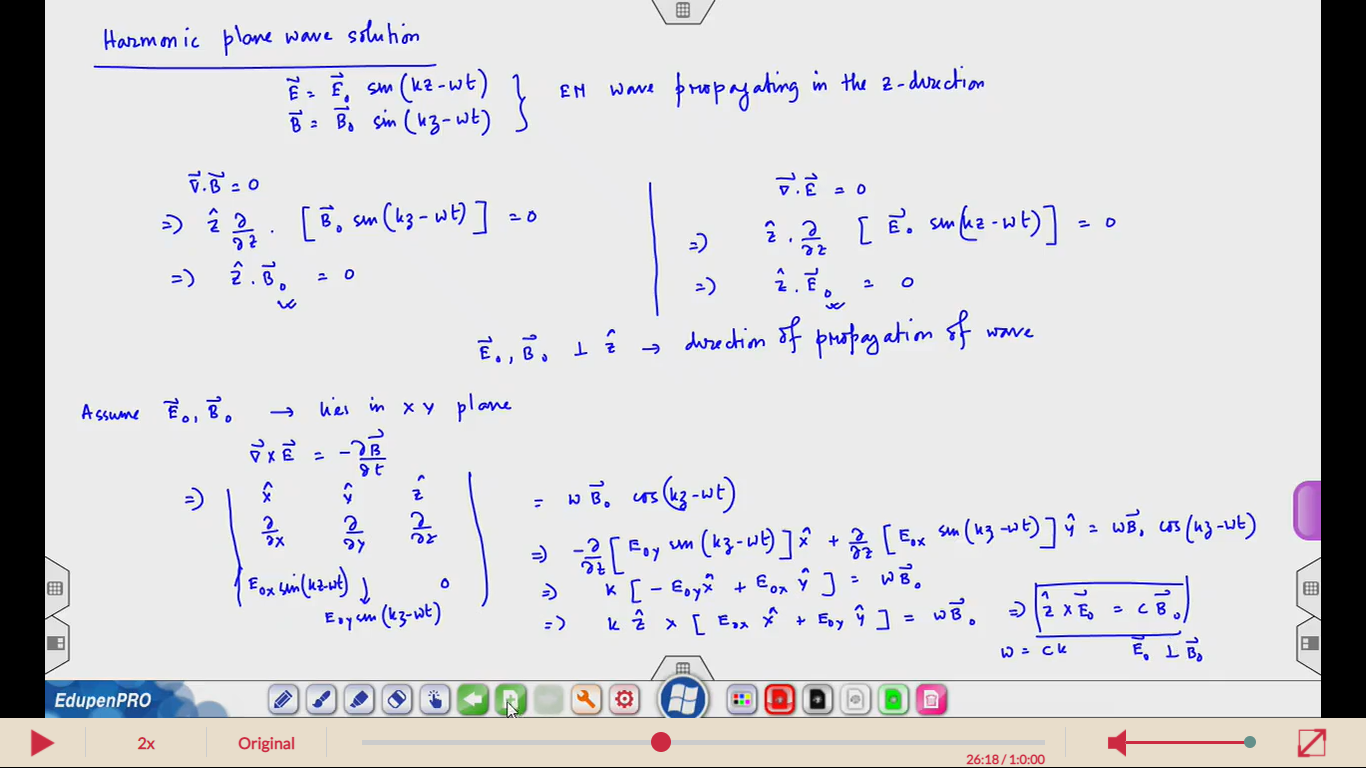 Harmonic plane wave solution
E⃗ = E⃗₀ sin(kz-wt) } EM wave propagating in the z-direction
B⃗ = B⃗₀ sin(kz-wt)
∇⃗.B⃗ = 0
=) ẑ ∂/∂z . [B⃗₀ sin(kz-wt)] = 0
=) ẑ.B⃗₀ = 0
∇⃗.E⃗ = 0
=) ẑ.∂/∂z [E⃗₀ sin(kz-wt)] = 0
=) ẑ.E⃗₀ = 0
E⃗₀, B⃗₀ ⊥ ẑ → direction of propagation of wave
Assume E⃗₀, B⃗₀ → lies in XY plane
∇⃗ x E⃗ = -∂B⃗/∂t
=) | x̂ ŷ ẑ |
∂/∂x ∂/∂y ∂/∂z
E₀x sin(kz-wt) ↓ 0
E₀y sin(kz-wt)
= w B⃗₀ cos(kz-wt)
=) -∂/∂z [E₀y sin(kz-wt)] x̂ + ∂/∂z [E₀x sin(kz-wt)] ŷ = wB⃗₀ cos(kz-wt)
=) k [-E₀y x̂ + E₀x ŷ] = wB⃗₀
=) k ẑ x [E₀x x̂ + E₀y ŷ] = wB⃗₀ =) ẑ x E⃗₀ = c B⃗₀
w = ck E⃗₀ ⊥ B⃗₀
EdupenPRO
2x Original 26:18 / 1:0:00